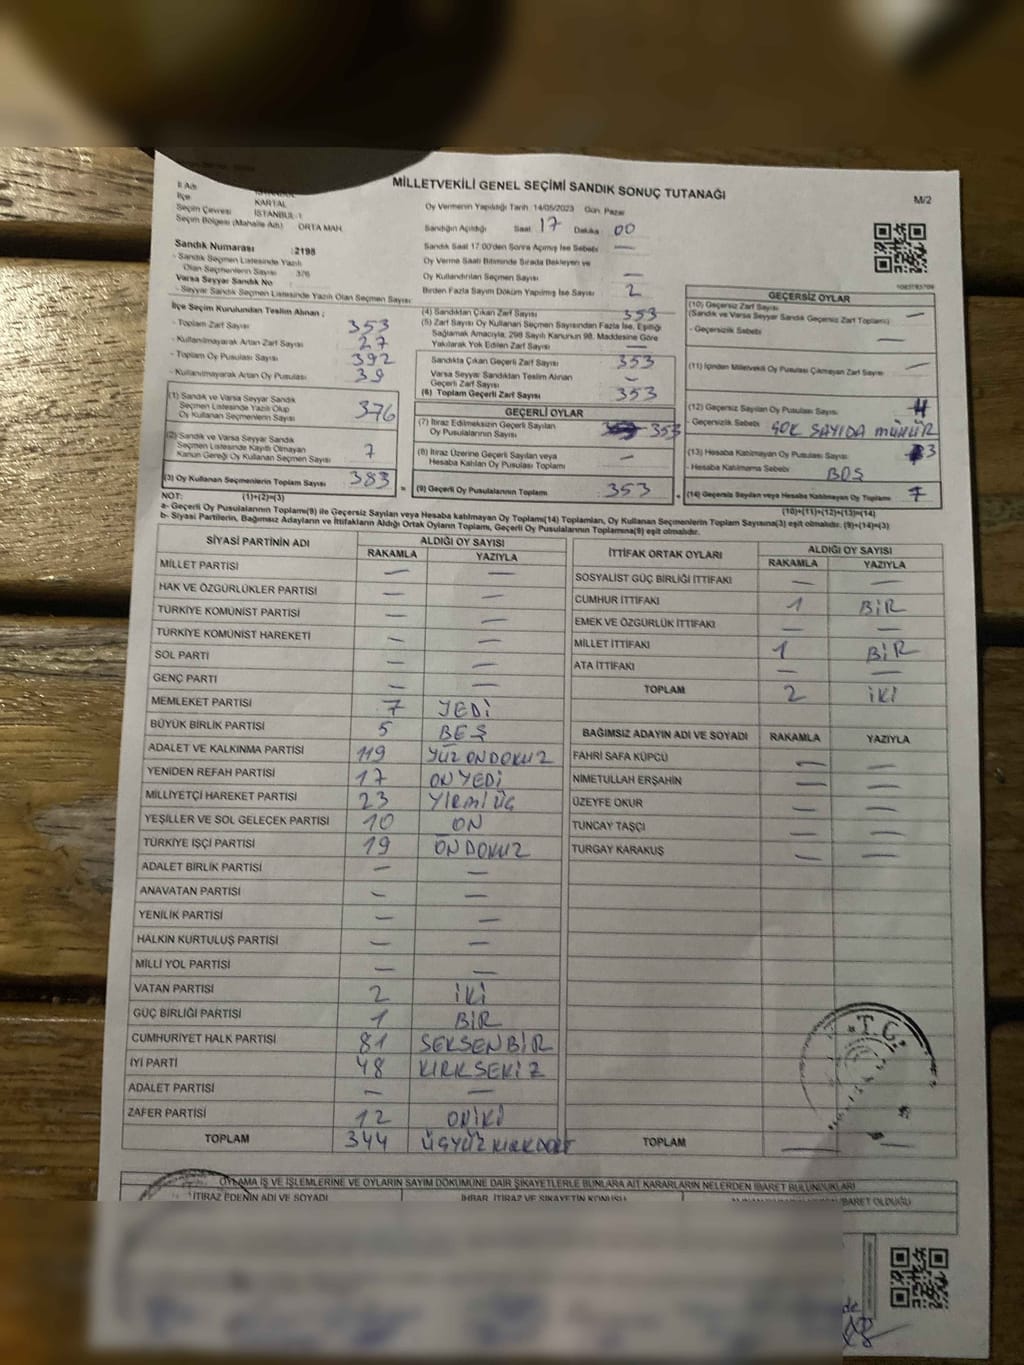 MİLLETVEKİLİ GENEL SEÇİMİ SANDIK SONUÇ TUTANAĞI
M/2
İl Adı
İlçe KARTAL
Seçim Çevresi İSTANBUL-1
Seçim Bölgesi (Mahalle Adı) ORTA MAH.
Sandık Numarası :2198
- Sandık Seçmen Listesinde Yazılı
Olan Seçmenlerin Sayısı 376
Varsa Seyyar Sandık No
- Seyyar Sandık Seçmen Listesinde Yazılı Olan Seçmen Sayısı
Oy Vermenin Yapıldığı Tarih 14/05/2023 Gün Pazar
Sandığın Açıldığı Saat 17 Dakika 00
Sandık Saat 17.00'den Sonra Açılmış İse Sebebi —
Oy Verme Saati Bitiminde Sırada Bekleyen ve
Oy Kullandırılan Seçmen Sayısı —
Birden Fazla Sayım Döküm Yapılmış İse Sayısı 2
İlçe Seçim Kurulundan Teslim Alınan ;
- Toplam Zarf Sayısı 353
- Kullanılmayarak Artan Zarf Sayısı 27
- Toplam Oy Pusulası Sayısı 392
- Kullanılmayarak Artan Oy Pusulası 39
(1) Sandık ve Varsa Seyyar Sandık
Seçmen Listesinde Yazılı Olup
Oy Kullanan Seçmenlerin Sayısı 376
(2) Sandık ve Varsa Seyyar Sandık
Seçmen Listesinde Kayıtlı Olmayan
Kanun Gereği Oy Kullanan Seçmen Sayısı 7
(3) Oy Kullanan Seçmenlerin Toplam Sayısı 383
(4) Sandıktan Çıkan Zarf Sayısı 353
(5) Zarf Sayısı Oy Kullanan Seçmen Sayısından Fazla İse, Eşitliği
Sağlamak Amacıyla, 298 Sayılı Kanunun 98. Maddesine Göre
Yakılarak Yok Edilen Zarf Sayısı —
Sandıkta Çıkan Geçerli Zarf Sayısı 353
Varsa Seyyar Sandıktan Teslim Alınan
Geçerli Zarf Sayısı —
(6) Toplam Geçerli Zarf Sayısı 353
GEÇERLİ OYLAR
(7) İtiraz Edilmeksizin Geçerli Sayılan
Oy Pusulalarının Sayısı 353
(8) İtiraz Üzerine Geçerli Sayılan veya
Hesaba Katılan Oy Pusulası Toplamı —
(9) Geçerli Oy Pusulalarının Toplamı 353
GEÇERSİZ OYLAR
(10) Geçersiz Zarf Sayısı
(Sandık ve Varsa Seyyar Sandık Geçersiz Zarf Toplamı) —
- Geçersizlik Sebebi —
(11) İçinden Milletvekili Oy Pusulası Çıkmayan Zarf Sayısı —
(12) Geçersiz Sayılan Oy Pusulası Sayısı 4
- Geçersizlik Sebebi ÇOK SAYIDA MÜHÜR
(13) Hesaba Katılmayan Oy Pusulası Sayısı 3
- Hesaba Katılmama Sebebi BOŞ
(14) Geçersiz Sayılan veya Hesaba Katılmayan Oy Toplamı 7
NOT: (1)+(2)=(3) (10)+(11)+(12)+(13)=(14)
a- Geçerli Oy Pusulalarının Toplamı(9) ile Geçersiz Sayılan veya Hesaba katılmayan Oy Toplamı(14) Toplamları, Oy Kullanan Seçmenlerin Toplam Sayısına(3) eşit olmalıdır. (9)+(14)=(3)
b- Siyasi Partilerin, Bağımsız Adayların ve İttifakların Aldığı Ortak Oyların Toplamı, Geçerli Oy Pusulalarının Toplamına(9) eşit olmalıdır.
SİYASİ PARTİNİN ADI ALDIĞI OY SAYISI
RAKAMLA YAZIYLA
MİLLET PARTİSİ — —
HAK VE ÖZGÜRLÜKLER PARTİSİ — —
TÜRKİYE KOMÜNİST PARTİSİ — —
TÜRKİYE KOMÜNİST HAREKETİ — —
SOL PARTİ — —
GENÇ PARTİ — —
MEMLEKET PARTİSİ 7 YEDİ
BÜYÜK BİRLİK PARTİSİ 5 BEŞ
ADALET VE KALKINMA PARTİSİ 119 YÜZ ONDOKUZ
YENİDEN REFAH PARTİSİ 17 ON YEDİ
MİLLİYETÇİ HAREKET PARTİSİ 23 YİRMİ ÜÇ
YEŞİLLER VE SOL GELECEK PARTİSİ 10 ON
TÜRKİYE İŞÇİ PARTİSİ 19 ON DOKUZ
ADALET BİRLİK PARTİSİ — —
ANAVATAN PARTİSİ — —
YENİLİK PARTİSİ — —
HALKIN KURTULUŞ PARTİSİ — —
MİLLİ YOL PARTİSİ — —
VATAN PARTİSİ 2 İKİ
GÜÇ BİRLİĞİ PARTİSİ 1 BİR
CUMHURİYET HALK PARTİSİ 81 SEKSENBİR
İYİ PARTİ 48 KIRKSEKİZ
ADALET PARTİSİ — —
ZAFER PARTİSİ 12 ONİKİ
TOPLAM 344 ÜÇYÜZ KIRKDÖRT
İTTİFAK ORTAK OYLARI ALDIĞI OY SAYISI
RAKAMLA YAZIYLA
SOSYALİST GÜÇ BİRLİĞİ İTTİFAKI — —
CUMHUR İTTİFAKI 1 BİR
EMEK VE ÖZGÜRLÜK İTTİFAKI — —
MİLLET İTTİFAKI 1 BİR
ATA İTTİFAKI — —
TOPLAM 2 İKİ
BAĞIMSIZ ADAYIN ADI VE SOYADI RAKAMLA YAZIYLA
FAHRİ SAFA KÜPCÜ — —
NİMETULLAH ERŞAHİN — —
ÜZEYFE OKUR — —
TUNCAY TAŞÇI — —
TURGAY KARAKUŞ — —
TOPLAM — —
T.C.
OYLAMA İŞ VE İŞLEMLERİNE VE OYLARIN SAYIM DÖKÜMÜNE DAİR ŞİKAYETLERLE BUNLARA AİT KARARLARIN NELERDEN İBARET BULUNDUKLARI
İTİRAZ EDENİN ADI VE SOYADI İHBAR, İTİRAZ VE ŞİKAYETİN KONUSU